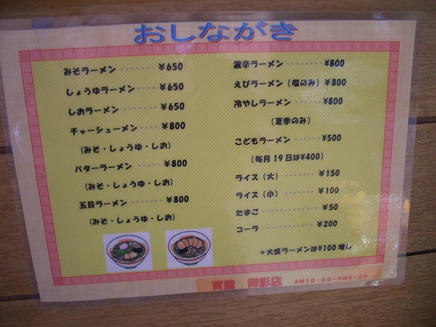 おしながき
みそラーメン………¥650
しょうゆラーメン……¥650
しおラーメン………¥650
チャーシューメン……¥800
(みそ・しょうゆ・しお)
バターラーメン……¥800
(みそ・しょうゆ・しお)
五目ラーメン………¥800
(みそ・しょうゆ・しお)
激辛ラーメン………¥800
えびラーメン(塩のみ)…¥800
冷やしラーメン………¥800
(夏季のみ)
こどもラーメン………¥500
(毎月19日は¥400)
ライス(大)………¥150
ライス(小)………¥100
たまご………¥50
コーラ………¥200
*大盛ラーメンは¥100増し
御影店